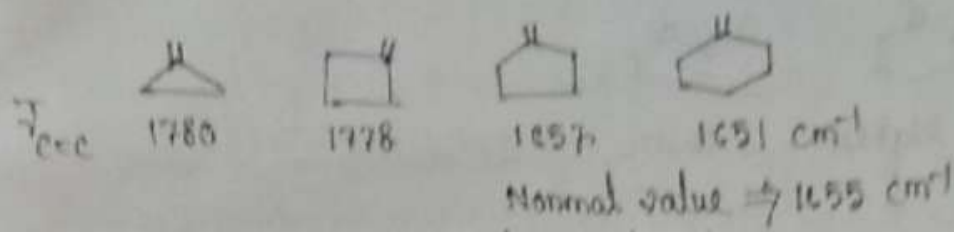 ν̄ C=C 1780 1778 1657 1651 cm⁻¹
Normal value ⇒ 1655 cm⁻¹